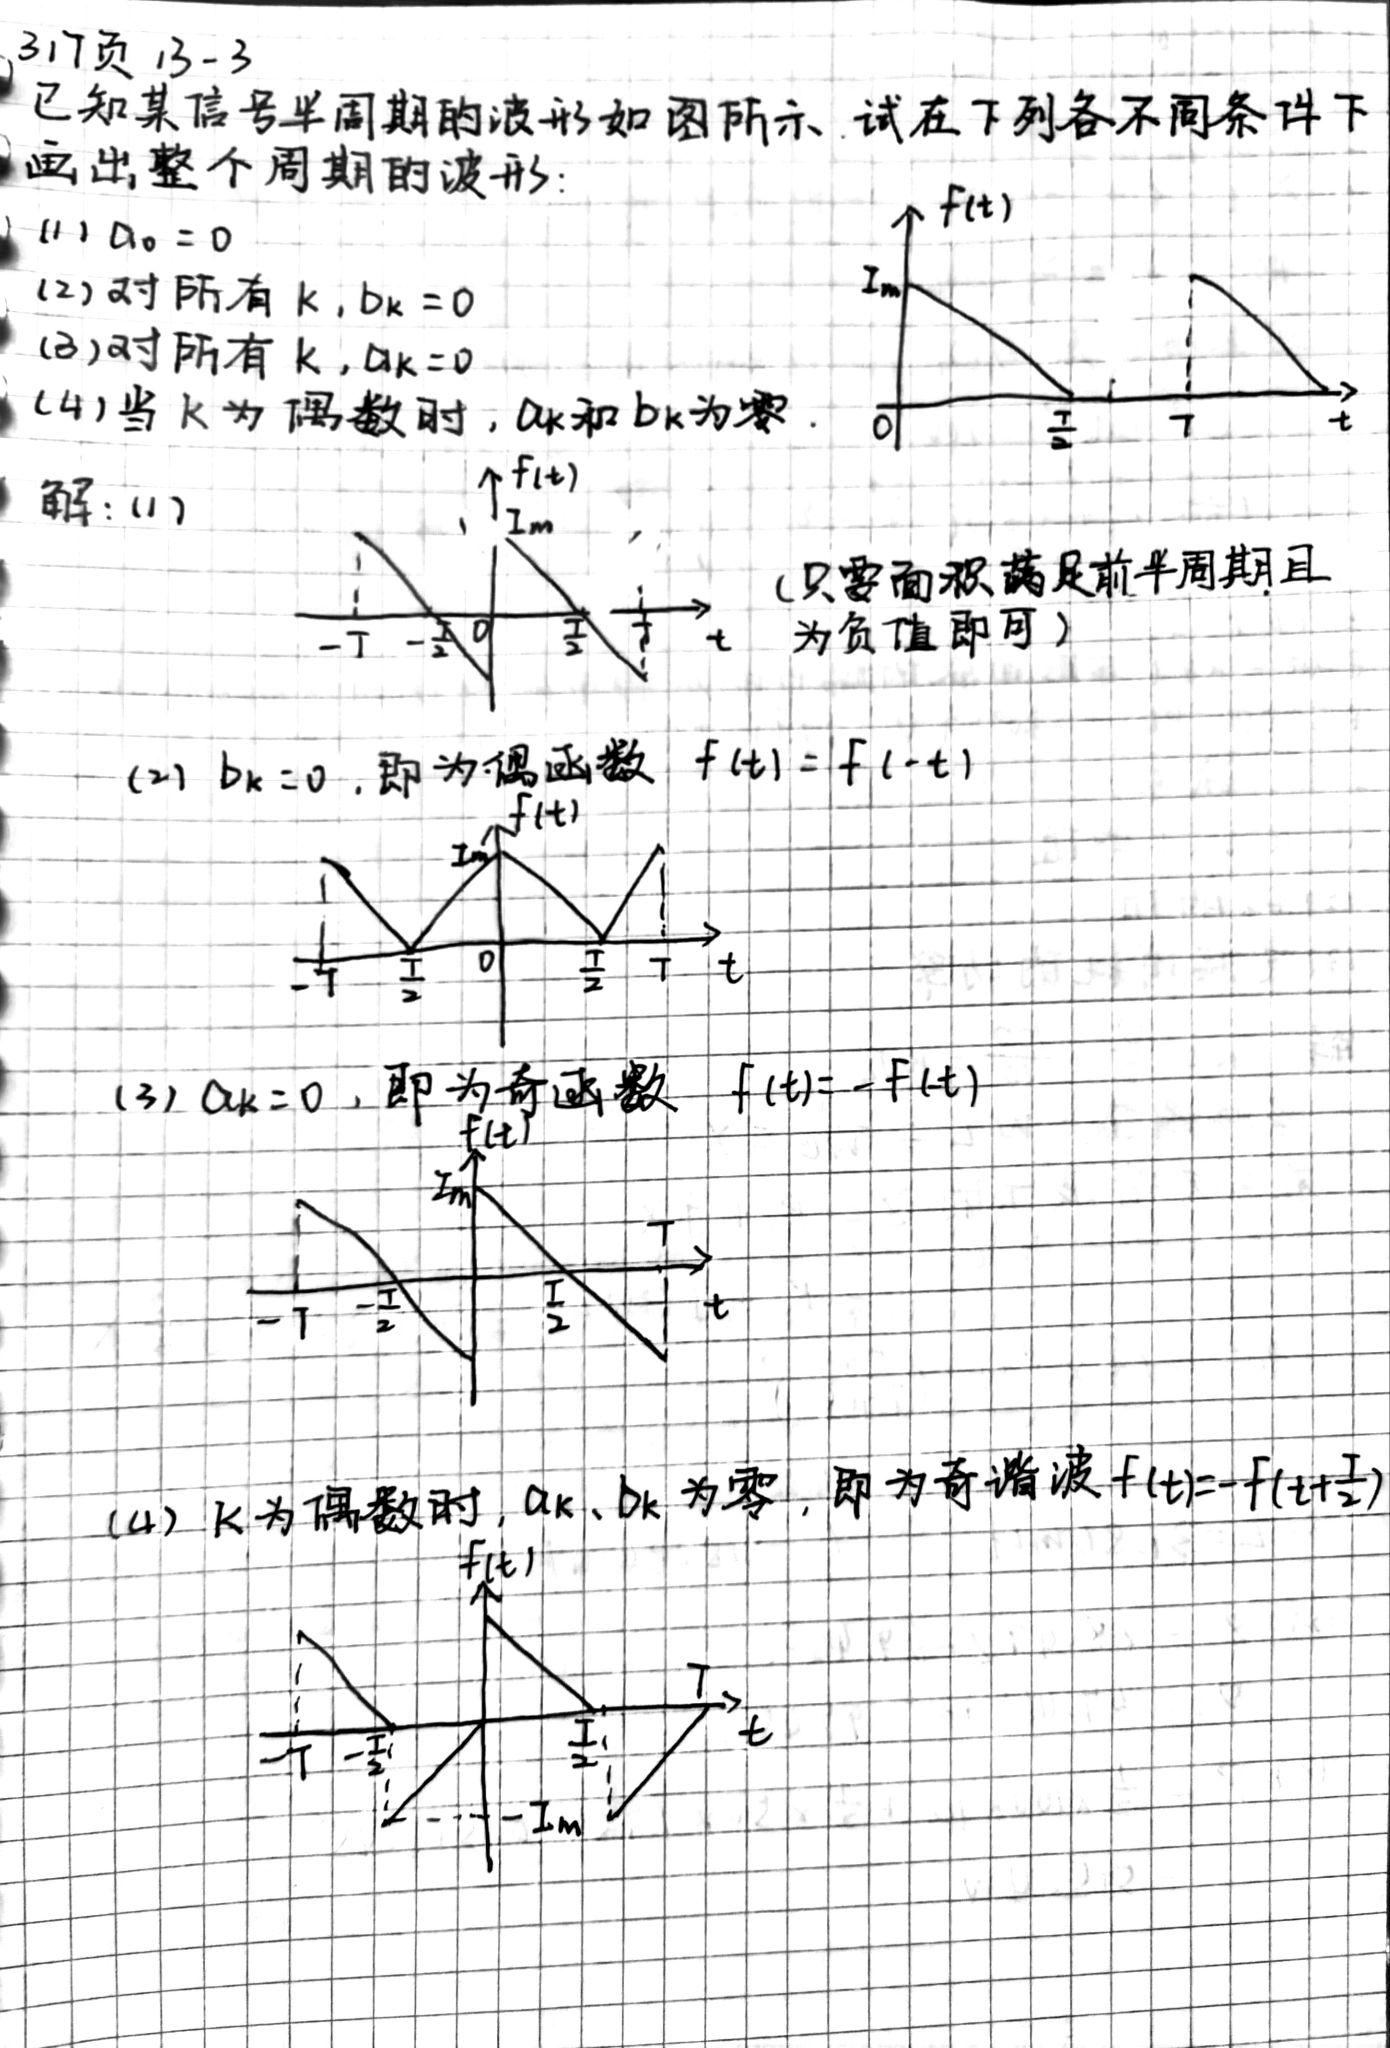 317页 13-3
已知某信号半周期的波形如图所示、试在下列各不同条件下
画出整个周期的波形:
(1) a₀ = 0
(2) 对所有 k, bₖ = 0
(3) 对所有 k, aₖ = 0
(4) 当 k 为偶数时, aₖ和 bₖ为零.
f(t)
Im
0 T/2 T t
解: (1)
f(t)
Im
-T -T/2 0 T/2 T t
(只要面积满足前半周期且
为负值即可)
(2) bₖ = 0, 即为偶函数 f(t) = f(-t)
f(t)
Im
-T T/2 0 T/2 T t
(3) aₖ = 0, 即为奇函数 f(t) = -f(-t)
f(t)
Im
T
-T -T/2 T/2 t
(4) k 为偶数时, aₖ、bₖ 为零, 即为奇谐波 f(t)=-f(t+T/2)
f(t)
T
-T -T/2 T/2 t
-Im